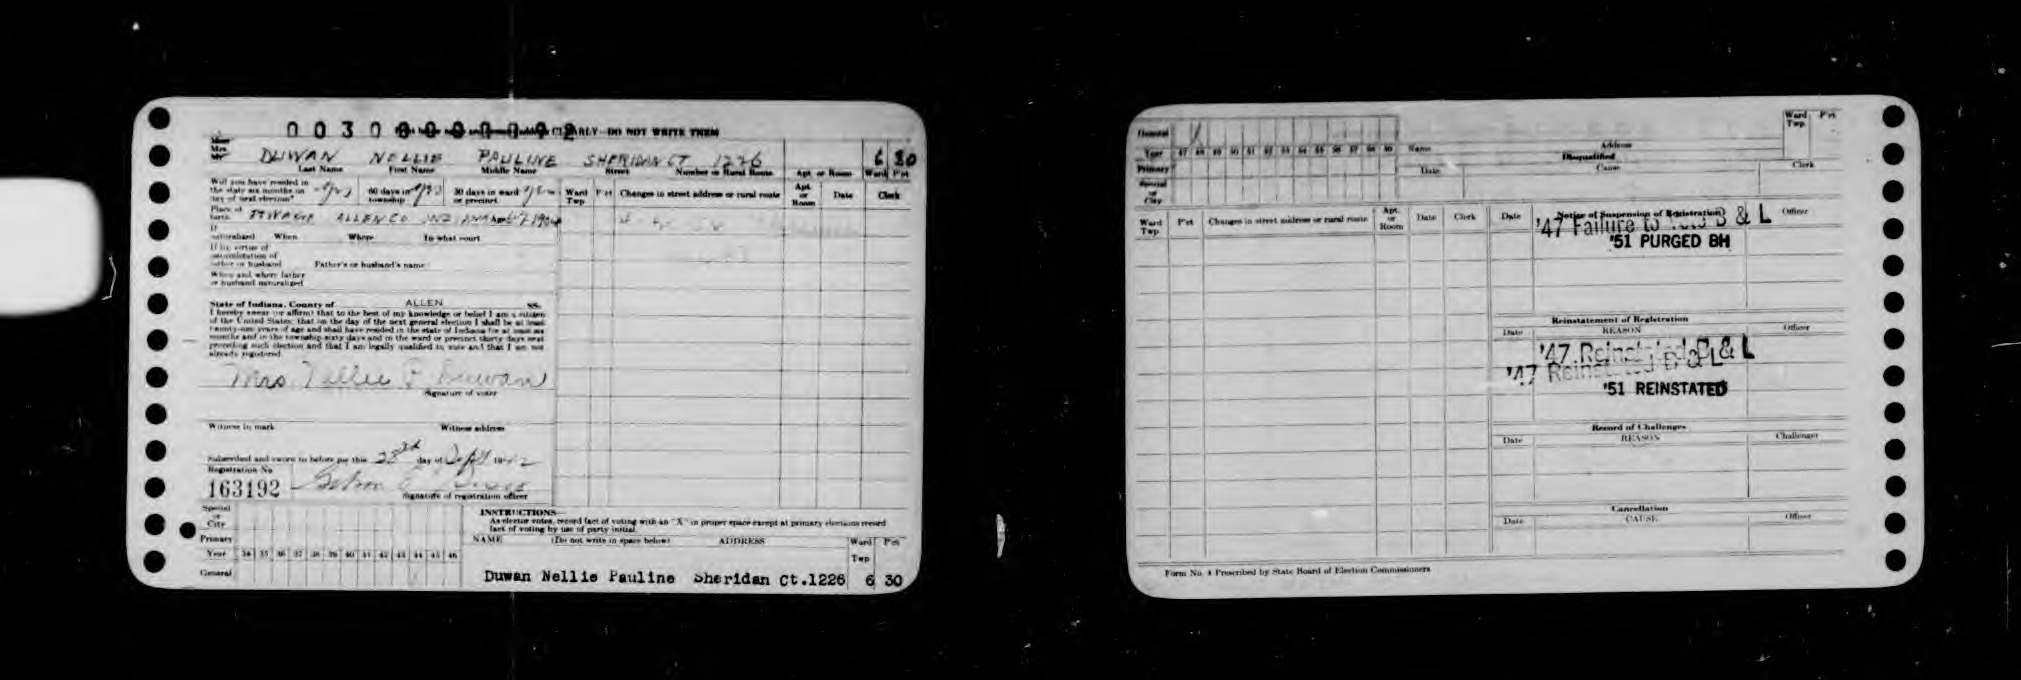 0030 CLEARLY—DO NOT WRITE THEM
Miss
Mrs.
Mr.
DUWAN NELLIE PAULINE SHERIDAN CT 1226 6 30
Last Name First Name Middle Name Street Number or Rural Route Apt. or Room Ward Pct
Will you have resided in
the state six months on
day of next election?
60 days in
township
30 days in ward
or precinct
Ward
Twp
Pct
Changes in street address or rural route
Apt.
or
Room
Date
Clerk
Place of
birth
FT WAYNE ALLEN CO IND
If
naturalized When Where In what court
If by virtue of
naturalization of
father or husband Father's or husband's name
When and where father
or husband naturalized
State of Indiana, County of ALLEN SS.
I hereby swear (or affirm) that to the best of my knowledge or belief I am a citizen
of the United States; that on the day of the next general election I shall be at least
twenty-one years of age and shall have resided in the state of Indiana for at least six
months and in the township sixty days and in the ward or precinct thirty days next
preceding such election and that I am legally qualified to vote and that I am not
already registered
Mrs. Nellie P. Duwan
Signature of voter
Witness to mark Witness address
Subscribed and sworn to before me this 25th day of Sept
Registration No.
163192
Signature of registration officer
Special
or
City
Primary
Year 34 35 36 37 38 39 40 41 42 43 44 45 46
General
INSTRUCTIONS
As elector votes, record fact of voting with an "X" in proper space except at primary elections record
fact of voting by use of party initial.
NAME (Do not write in space below) ADDRESS Ward Pct
Twp
Duwan Nellie Pauline Sheridan Ct.1226 6 30
General
Year 47 48 49 50 51 52 53 54 55 56 57 58 59
Primary
Special
or
City
Name Address
Ward
Twp
Pct
Disqualified
Date Cause Clerk
Ward
Twp
Pct
Changes in street address or rural route
Apt.
or
Room
Date
Clerk
Date Notice of Suspension of Registration Officer
'47 Failure to Vote B & L
'51 PURGED BH
Reinstatement of Registration
Date REASON Officer
'47 Reinstated B & L
'47 Reinstated B & L
'51 REINSTATED
Record of Challenges
Date REASON Challenger
Cancellation
Date CAUSE Officer
Form No. 4 Prescribed by State Board of Election Commissioners